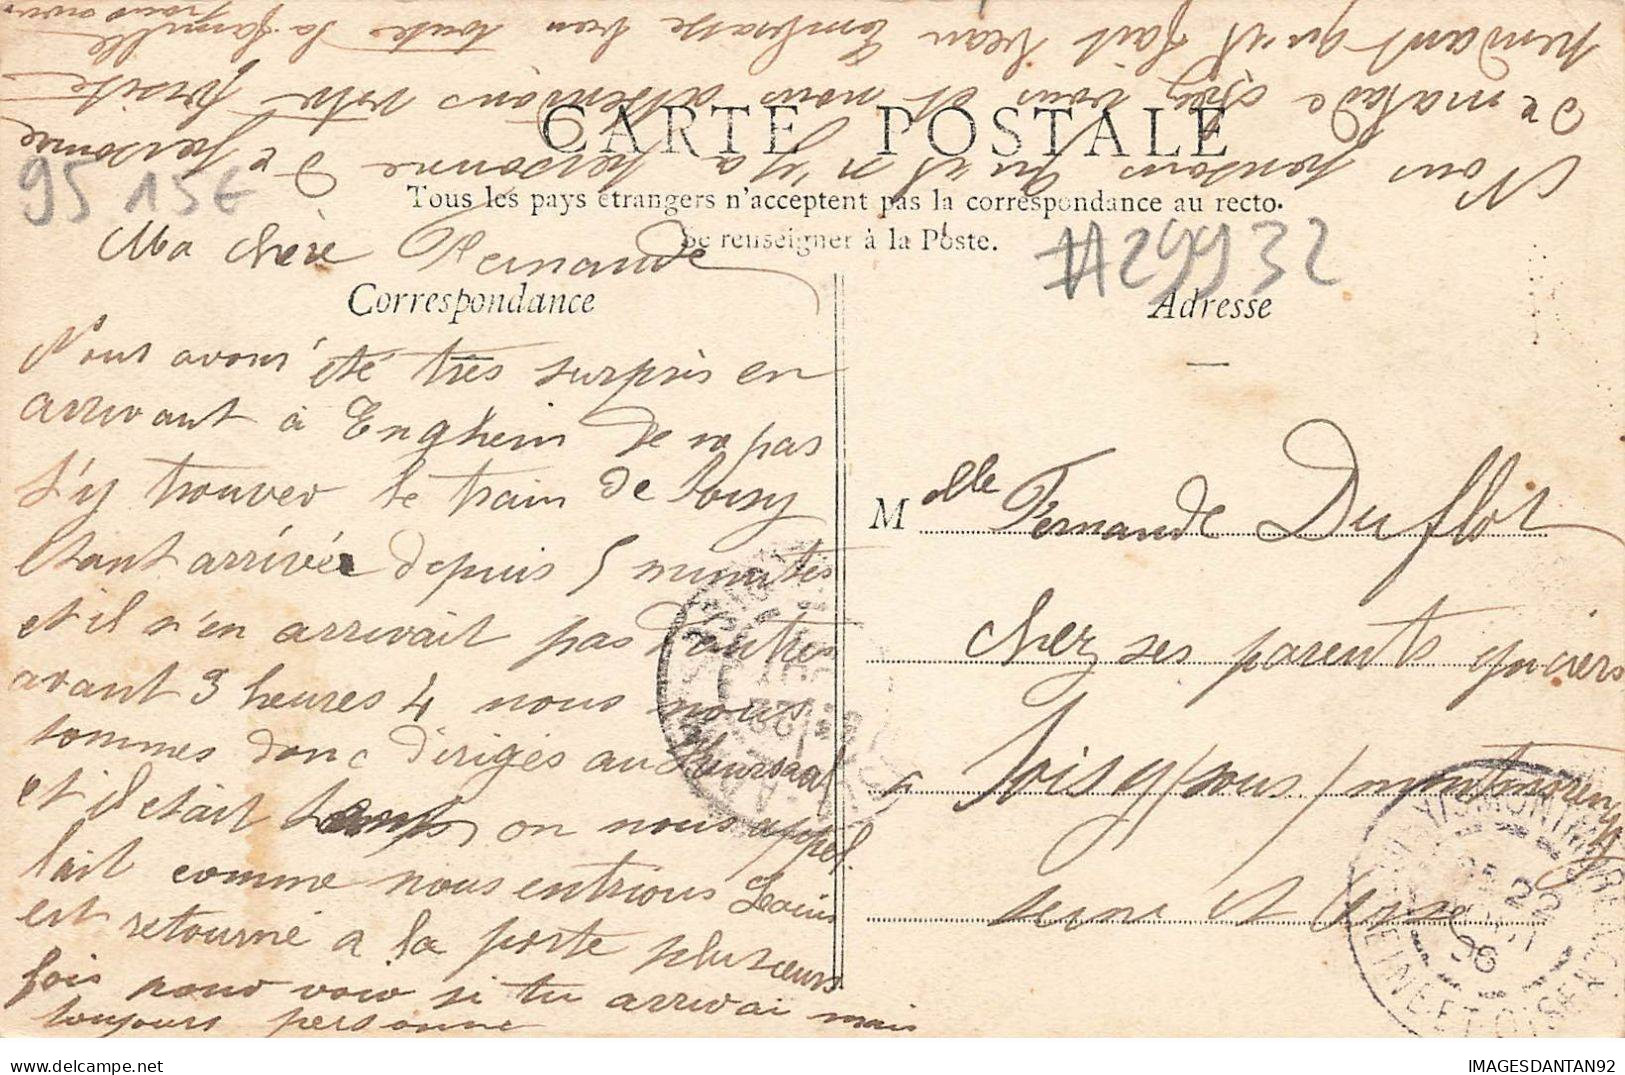 CARTE POSTALE
Tous les pays étrangers n'acceptent pas la correspondance au recto.
Se renseigner à la Poste.
95 15€
#29932
Correspondance
Adresse
Ma chère Fernande
Nous avons été très surpris en
arrivant à Enghein de ne pas
t'y trouver le train de Soisy
etant arrivée depuis 5 minutes
et il n'en arrivait pas d'autres
avant 3 heures 4 nous nous
sommes donc dirigés au Kursaal
et il était temps on nous appel
lait comme nous entrions Louis
est retourné a la porte plusieurs
fois pour voir si tu arrivai mais
toujours personne
Nous pensons qu'il n'y a personne de
de malade chez vous et nous attendons votre visite
pendant qu'il fait beau Embrasse bien toute la famille
pour nous
Melle Fernande Duflot
chez ses parents epiciers
a Soisy/sous/montmorency
seine et Oise
SOISY-S-MONTMORENCY
SEINE-ET-OISE